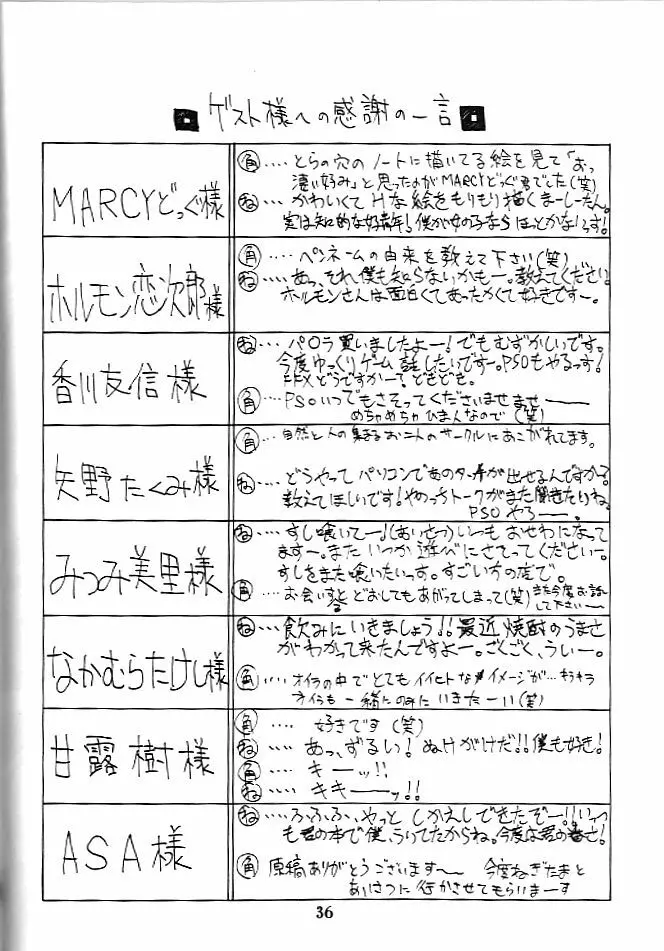 ゲスト様への感謝の一言
MARCYどっぐ様
角‥‥とらの穴のノートに描いてる絵を見て「おっ
凄い好み」と思ったのがMARCYどっぐ君でした(笑)
ね‥かわいくてHな絵をもりもり描くまーしーたん。
実は知的な好青年!僕が女の子ならほっとかないっす!
ホルモン恋次郎様
角‥‥ペンネームの由来を教えて下さい(笑)
ね‥‥あっ、それ僕も知らないかもー。教えてください。
ホルモンさんは面白くてあったかくて好きですー。
香川友信様
ね‥‥パロラ買いましたよー!でもむずかしいです。
今度ゆっくりゲーム話したいですー。PSOもやるっす!
FFXどうですかー?ども
角‥‥PSOいつでもさそってくださいませませー
めちゃめちゃひまんなので(笑)
矢野たくみ様
角‥‥自然と人の集まるお二人のサークルにあこがれてます。
ね‥‥どうやってパソコンであのタッチが出せるんですか?
教えてほしいです!やのっちトークがまた聞きたいね。
PSOやろー。
みつみ美里様
ね‥‥すし喰いてー!(あいさつ)いつもおせわになって
ますー。またいつか遊べにさせてってくださいー。
すしをまた喰いたいっす。すごい方の庭で。
角‥‥お会いするとどおしてもあがってしまって(笑)また今度お話
して下さい〜
なかむらたけし様
ね‥‥飲みにいきましょう!!最近焼酎のうまさ
がわかって来たんですよー。ごくごく、うぃー。
角‥‥オイラの中でとてもイイヒトなイメージが…キラキラ
オイラも一緒にのみにいきたーい(笑)
甘露樹様
角‥‥好きです(笑)
ね‥‥あっ、ずるい!ぬけがけだ!!僕も好き!
角‥‥キーッ!!
ね‥‥キキーッ!!
ASA様
ね‥‥ふふふ、やっとしかえしできたぞー!!いっつ
も君の本で僕、うりてたからね。今度は君の番さ!
角 原稿ありがとうございます〜 今度ねぎたまと
あいさつに行かさせてもらいまーす
36